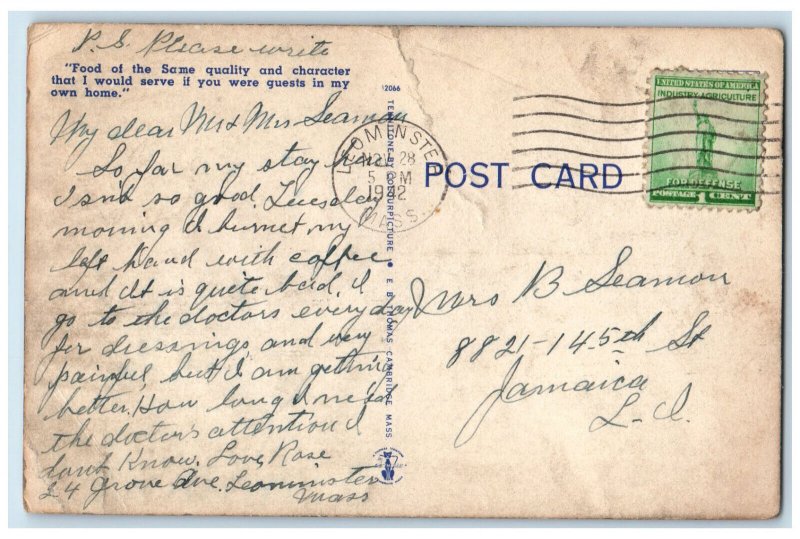 P.S. Please write
"Food of the Same quality and character
that I would serve if you were guests in my
own home."
My dear Mr & Mrs Seamon
So far my stay here
Isnt so good, Tuesday
morning I burnet my
left hand with coffee
and it is quite bad. I
go to the doctors every day
for dressings and very
painful but I am getting
better. How long I need
the doctor's attention I
dont know. Love, Rose
24 Grove Ave. Leominster
Mass
12066
COLOURPICTURE
E. B. THOMAS CAMBRIDGE MASS
LEOMINSTER
28
5 PM
1942
MASS.
POST CARD
UNITED STATES OF AMERICA
INDUSTRY-AGRICULTURE
FOR DEFENSE
POSTAGE 1 CENT
Mrs B Seamon
8821-145th St
Jamaica
L.I.